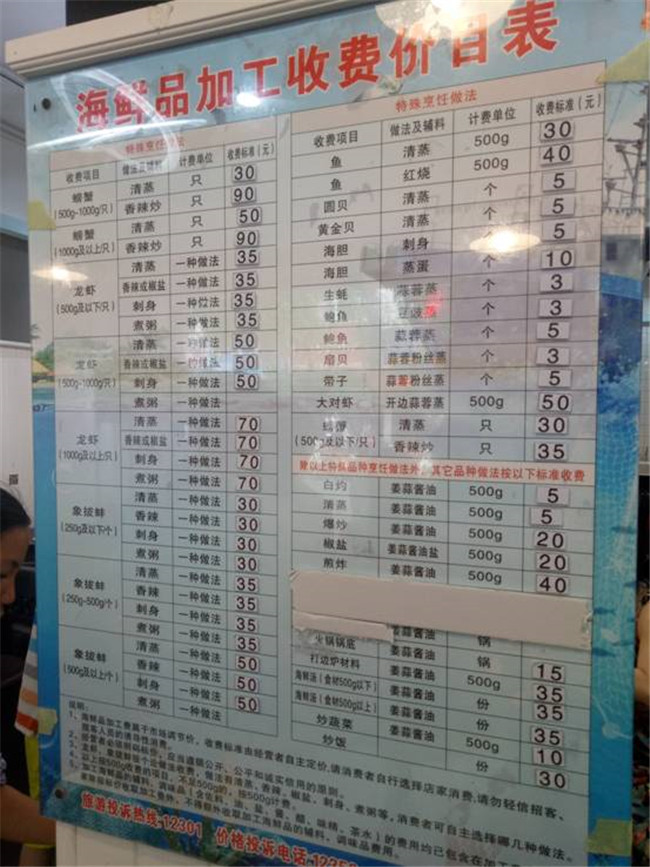 海鲜品加工收费价目表
特殊烹饪做法
收费项目 做法及辅料 计费单位 收费标准(元)
螃蟹 (500g-1000g/只) 清蒸 只 30
香辣炒 只 90
螃蟹 (1000g及以上/只) 清蒸 只 50
香辣炒 只 90
龙虾 (500g及以下/只) 清蒸 一种做法 35
香辣或椒盐 一种做法 35
刺身 一种做法 35
煮粥 一种做法 35
龙虾 (500g-1000g/只) 清蒸 一种做法 50
香辣或椒盐 一种做法 50
刺身 一种做法 50
煮粥 一种做法
龙虾 (1000g及以上/只) 清蒸 一种做法 70
香辣或椒盐 一种做法 70
刺身 一种做法 70
煮粥 一种做法 70
象拔蚌 (250g及以下/个) 清蒸 一种做法 30
香辣 一种做法 30
刺身 一种做法 30
煮粥 一种做法 30
象拔蚌 (250g-500g/个) 清蒸 一种做法 35
香辣 一种做法 35
刺身 一种做法 35
煮粥 一种做法 35
象拔蚌 (500g及以上/个) 清蒸 一种做法 50
香辣 一种做法 50
刺身 一种做法 50
煮粥 一种做法 50
特殊烹饪做法
收费项目 做法及辅料 计费单位 收费标准(元)
鱼 清蒸 500g 30
鱼 红烧 500g 40
圆贝 清蒸 个 5
黄金贝 清蒸 个 5
海胆 刺身 个 5
海胆 蒸蛋 个 10
生蚝 蒜蓉蒸 个 3
鲍鱼 豆豉蒸 个 3
鲍鱼 蒜蓉蒸 个 5
扇贝 蒜蓉粉丝蒸 个 3
带子 蒜蓉粉丝蒸 个 5
大对虾 开边蒜蓉蒸 500g 50
螃蟹 (500g及以下/只) 清蒸 只 30
香辣炒 只 35
除以上特殊品种烹饪做法外，其它品种做法按以下标准收费
白灼 姜蒜酱油 500g 5
清蒸 姜蒜酱油 500g 5
爆炒 姜蒜酱油 500g 20
椒盐 姜蒜酱油盐 500g 20
煎炸 姜蒜酱油 500g 40
火锅锅底 姜蒜酱油 锅
打边炉材料 姜蒜酱油 锅 15
海鲜汤(食材500g以下) 姜蒜酱油 500g 35
海鲜汤(食材500g以上) 姜蒜酱油 份 35
炒蔬菜 姜蒜酱油 份 35
炒饭 500g 10
份 30
说明：
1、海鲜品加工费属于市场调节价，收费标准由经营者自主定价，请消费者自行选择店家消费，请勿轻信招客、
拉客人员的诱导性消费。
2、经营者必须明码标价，应当遵循公开、公平和诚实信用的原则。
3、龙虾、象拔蚌按个近一种做法收费，做法有清蒸、香辣、椒盐、刺身、煮粥等，消费者可自主选择哪几种做法。
4、以上按500g收费的项目，不足500g的，按500g计费。
旅游投诉热线:12301 价格投诉电话:12358